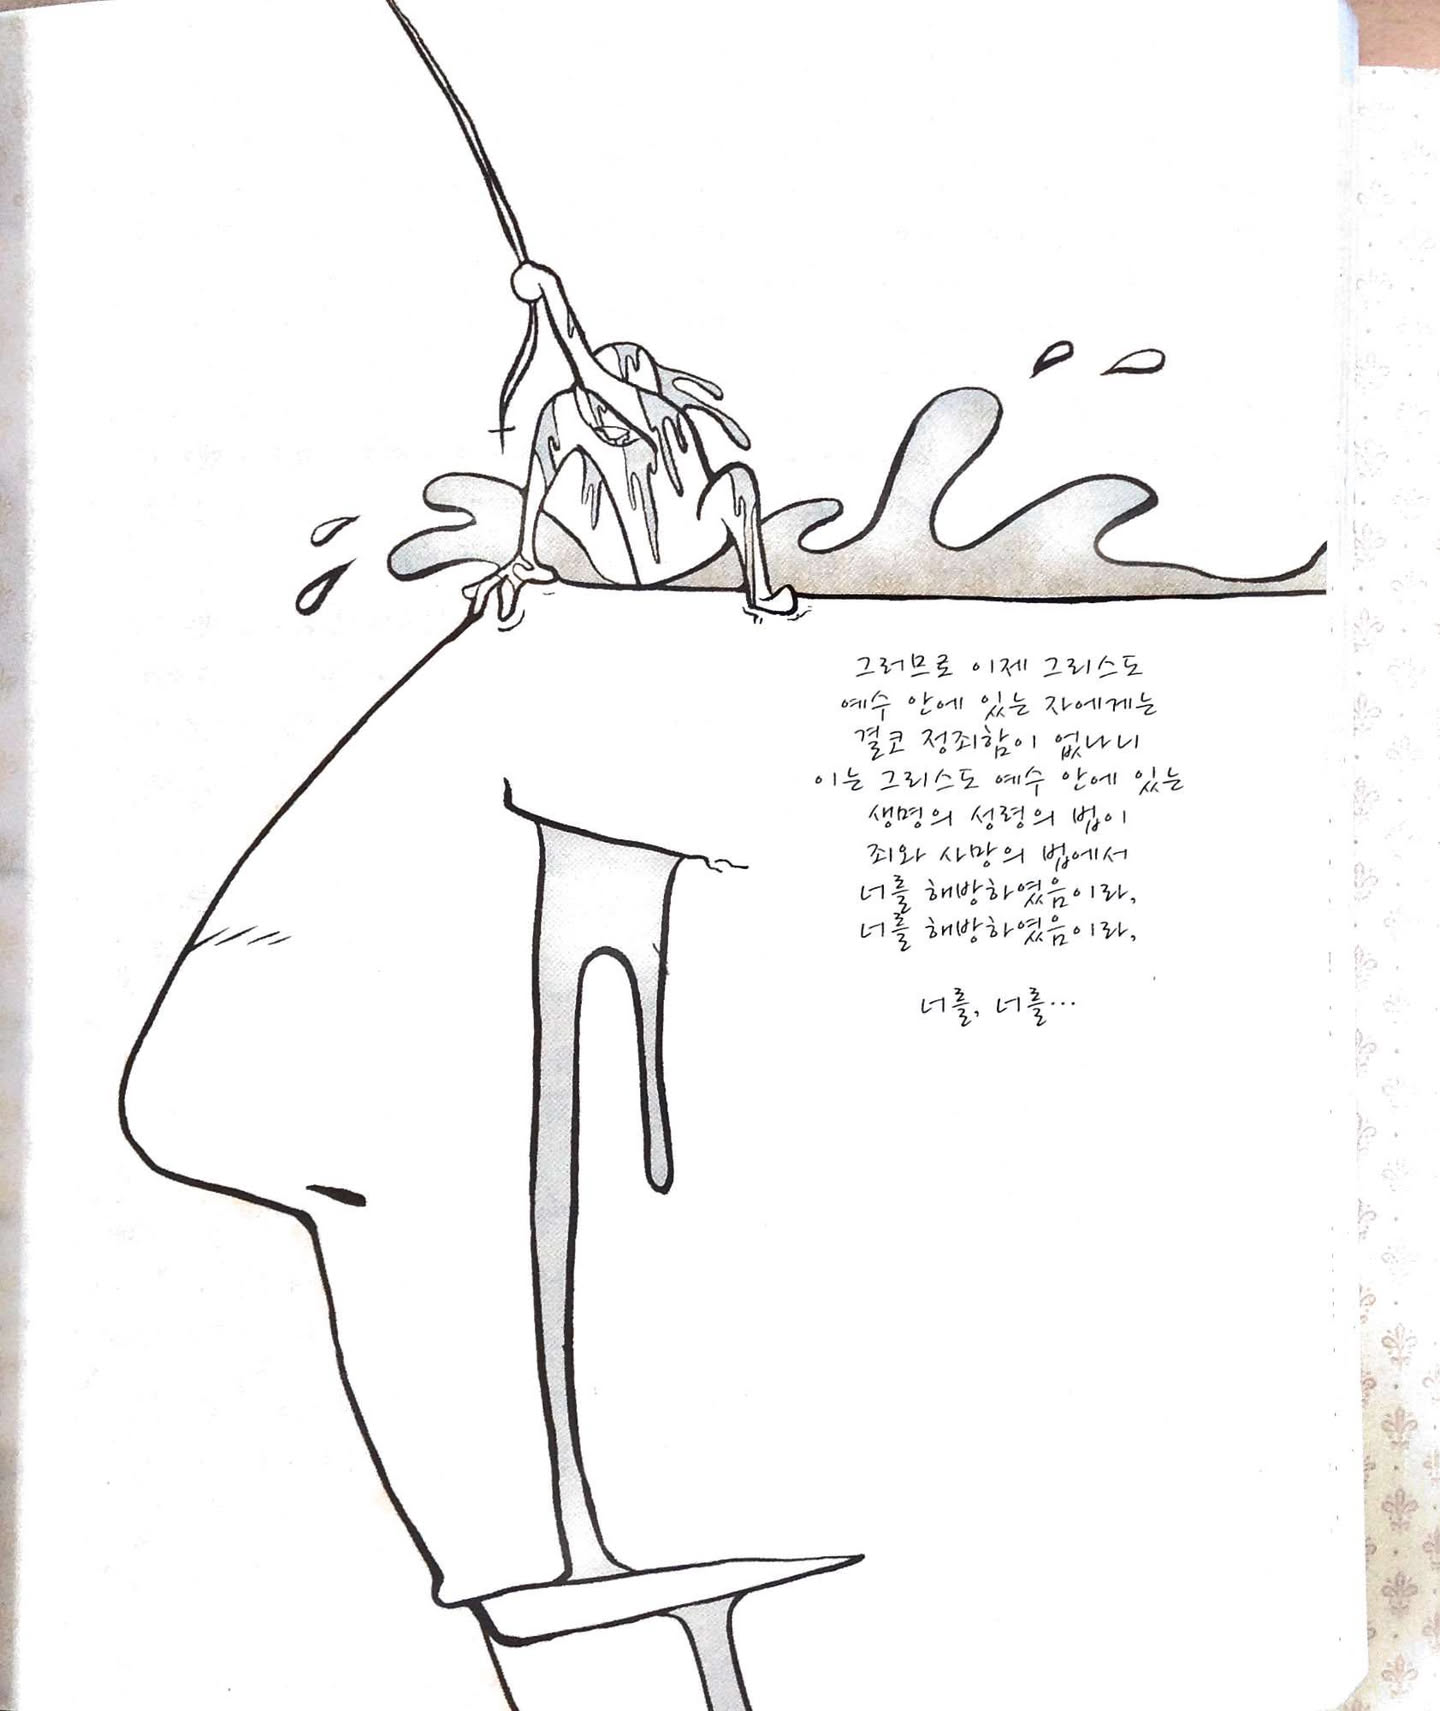 그러므로 이제 그리스도
예수 안에 있는 자에게는
결코 정죄함이 없나니
이는 그리스도 예수 안에 있는
생명의 성령의 법이
죄와 사망의 법에서
너를 해방하였음이라,
너를 해방하였음이라,
너를, 너를…